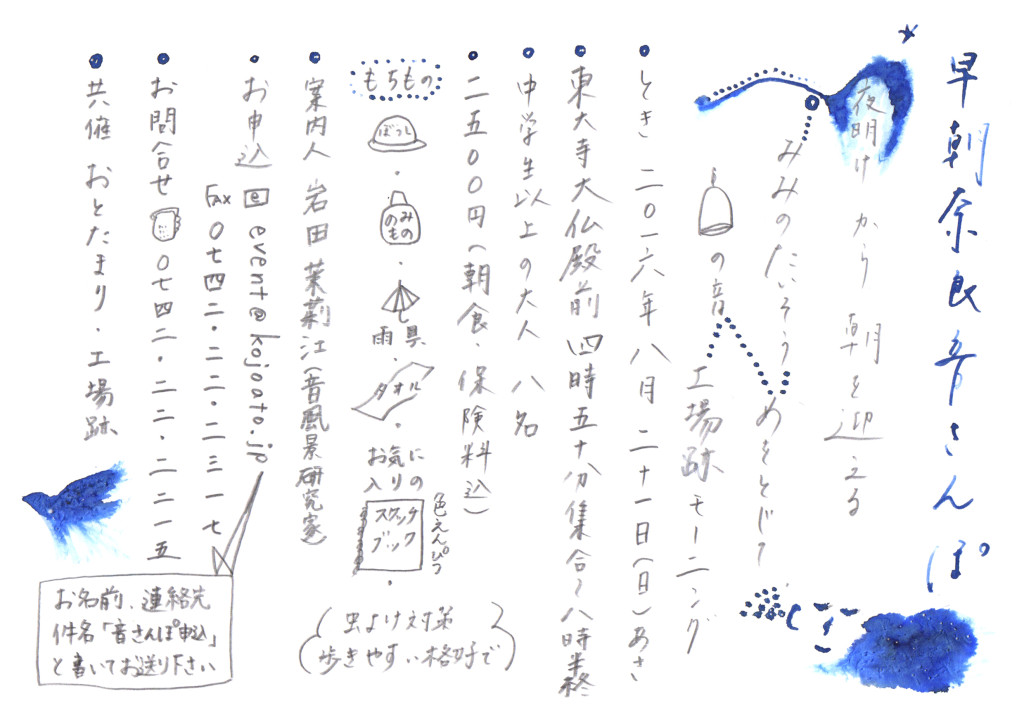 早朝奈良音さんぽ
夜明けから 朝を迎える
みみのたいそう めをとじて
の音 工場跡モーニング
とき 二〇一六年八月二十一日(日)あさ
東大寺大仏殿前 四時五十分集合〜八時半終
中学生以上の大人 八名
二五〇〇円(朝食、保険料込)
もちもの
ぼうし
のみもの
雨具
タオル
お気に入りの
スケッチブック
色えんぴつ
虫よけ対策
歩きやすい格好で
案内人 岩田茉莉江(音風景研究家)
お申込 e event@kojoato.jp
FAX 〇七四二・二二・二三一七
お名前、連絡先
件名「音さんぽ申込」
と書いてお送り下さい
お問合せ 〇七四二・二二・二二一五
共催 おとたまり・工場跡